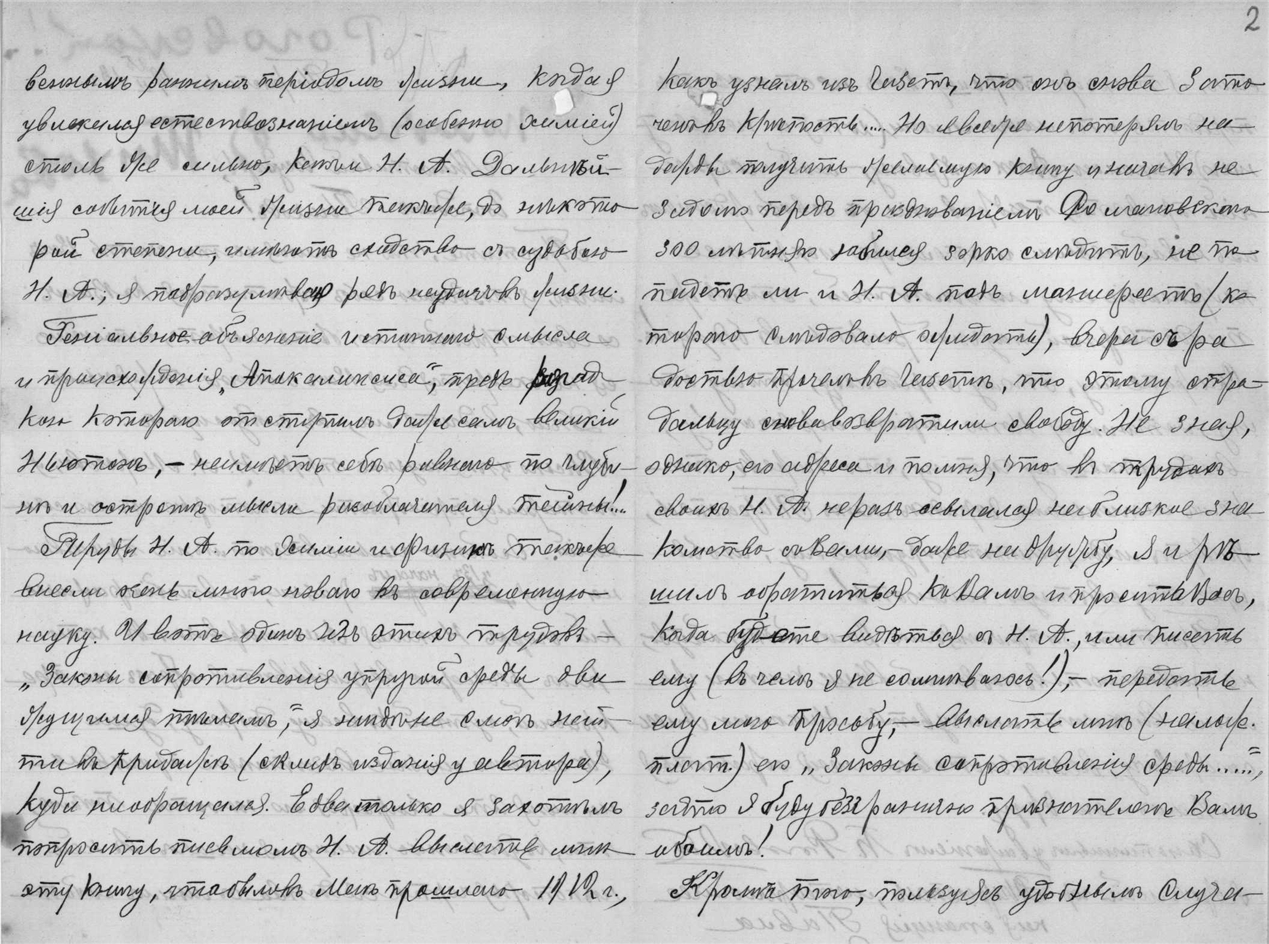 2
веннымъ раннимъ періодомъ жизни, когда я
увлекался естествознаніемъ (особенно химіей)
столь же сильно, какъ и Н. А. Дальнѣй-
шія событія моей жизни также, до нѣкото
рой степени, имѣютъ сходство съ судьбою
Н. А.; я подразумѣваю рядъ неудачъ въ жизни.
Геніальное объясненіе истиннаго смысла
и происхожденія „Апокалипсиса", предъ разгад
кою котораго отступилъ даже самъ великій
Ньютонъ, – не имѣетъ себѣ равнаго по глуби
нѣ и остротѣ мысли разоблачителя тайны!...
Труды Н. А. по химіи и физикѣ также
внесли очень много новаго въ современную
науку. И вотъ одинъ изъ этихъ трудовъ –
„Законы сопротивленія упругой среды дви
жущимся тѣламъ", я нигдѣ не смогъ най-
ти въ продажѣ (складъ изданія у автора),
куда ни обращался. Едва только я захотѣлъ
попросить письмомъ Н. А. выслать мнѣ
эту книгу, что было въ Маѣ прошлаго 1912 г.,
какъ узналъ изъ газетъ, что онъ снова зато
ченъ въ крѣпость..... Но я все же не потерялъ на-
дежды получить желаемую книгу и началъ не
задолго передъ празднованіемъ Романовскаго
300 лѣтняго юбилея зорко слѣдить, не по
падетъ ли и Н. А. подъ манифестъ (ко
тораго слѣдовало ожидать), вчера съ ра
достью прочелъ въ газетѣ, что этому стра
дальцу снова возвратили свободу. Не зная,
однако, его адреса и помня, что въ трудахъ
своихъ Н. А. не разъ ссылался на близкое зна
комство съ Вами, – даже на дружбу, я и рѣ
шилъ обратиться къ Вамъ и просить Васъ,
когда будете видѣться съ Н. А., или писать
ему (въ чемъ я не сомнѣваюсь!), – передать
ему мою просьбу, – выслать мнѣ (налож.
плат.) его „Законы сопротивленія среды.....",
за что я буду безгранично признателенъ Вамъ
обоимъ!
Кромѣ того, пользуясь удобнымъ случа-